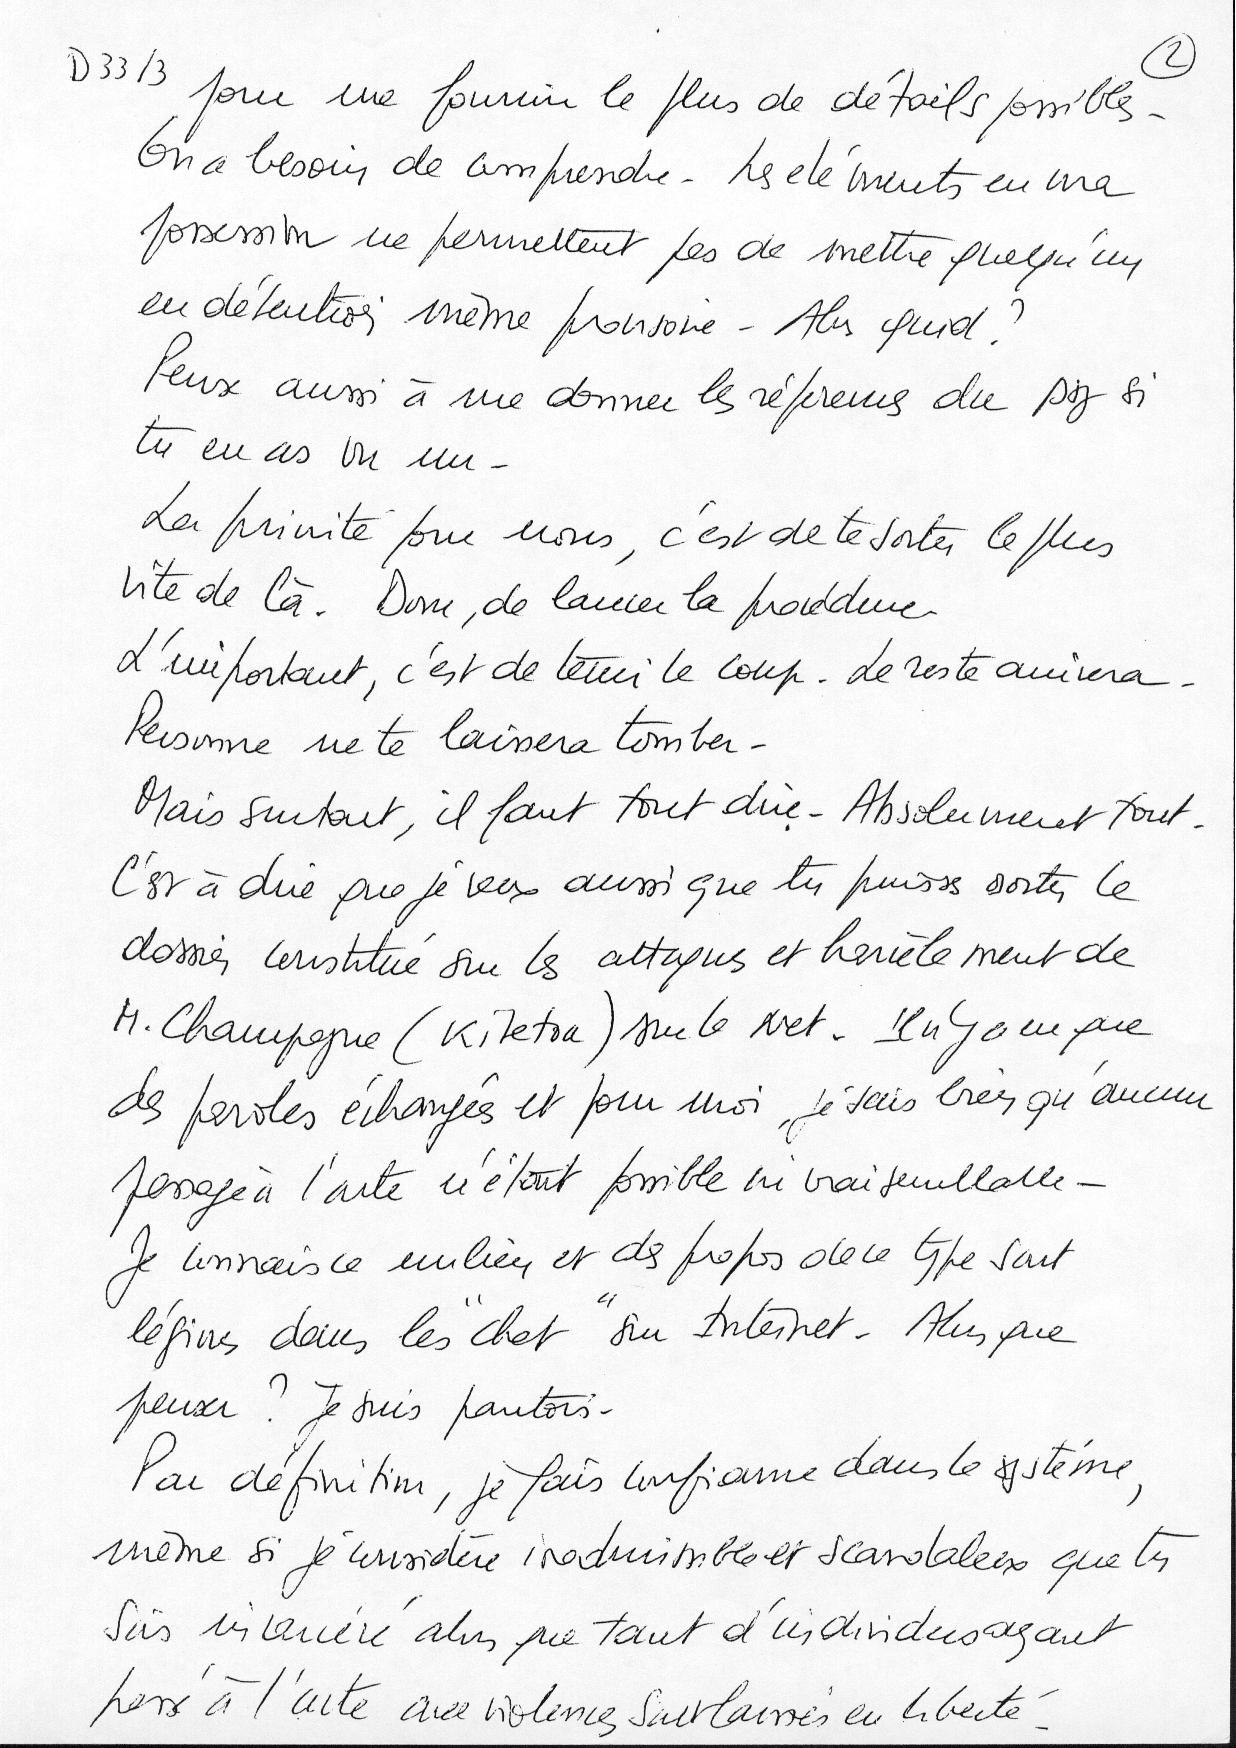 D33/3
2
pour me fournir le plus de détails possibles -
On a besoin de comprendre - Les éléments en ma
possession ne permettent pas de mettre quelqu'un
en détention même provisoire - Alors quid ?
Peux aussi à me donner les références du psy si
tu en as vu un -
La priorité pour nous, c'est de te sortir le plus
vite de là. Donc, de lancer la procédure
L'important, c'est de tenir le coup. Le reste arrivera -
Personne ne te laissera tomber -
Mais surtout, il faut tout dire - Absolument tout -
C'est à dire que je veux aussi que tu puisses sortir le
dossier constitué sur les attaques et harcèlement de
M. Champagne ( ) sur le Net - Il n'y a eu que
des paroles échangées et pour moi, je sais bien qu'aucun
passage à l'acte n'était possible ni vraisemblable -
Je connais ce milieu et des propos de ce type sont
légions dans les "chat" sur Internet - Alors que
penser ? Je suis pantois -
Par définition, je fais confiance dans le système,
même si je considère inadmissible et scandaleux que tu
sois incarcéré alors que tant d'individus ayant
passé à l'acte avec violences sont laissés en liberté -